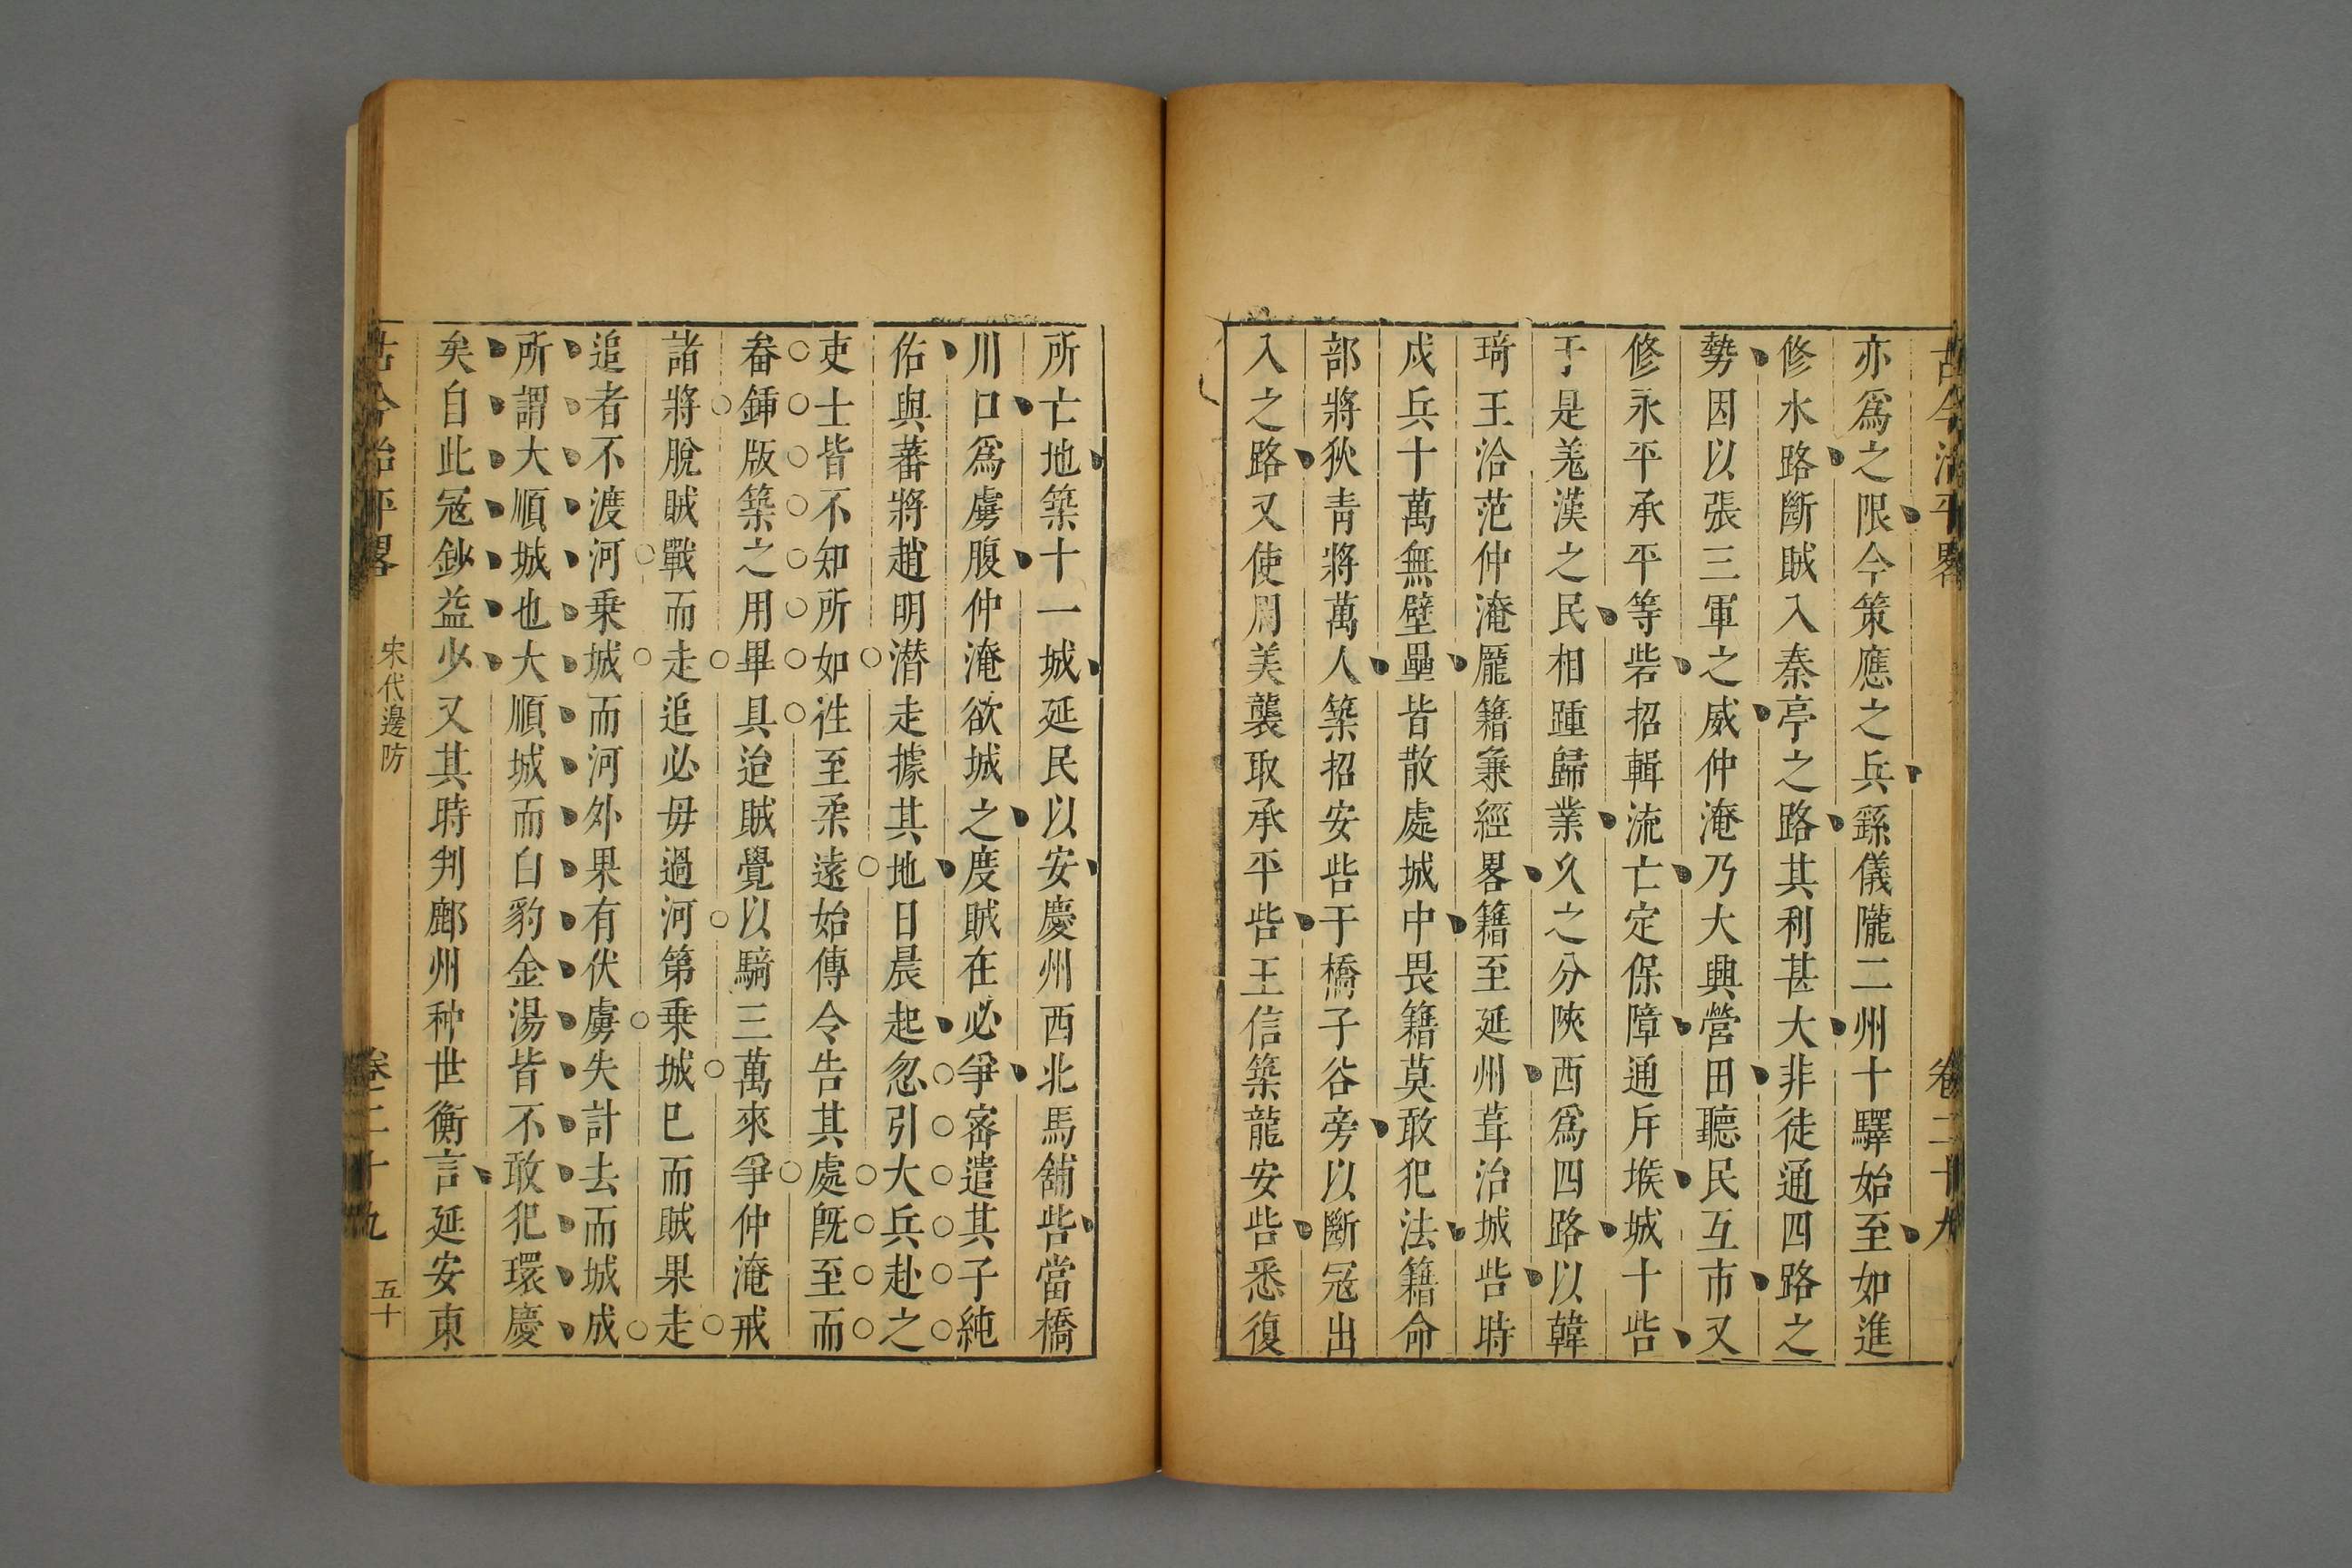 古今治平畧 卷二十九
亦爲之限今策應之兵繇儀隴二州十驛始至如進
修水路斷賊入秦亭之路其利甚大非徒通四路之
勢因以張三軍之威仲淹乃大興營田聽民互市又
修永平承平等砦招輯流亡定保障通斥堠城十砦
于是羗漢之民相踵歸業久之分陝西爲四路以韓
琦王洽范仲淹龎籍兼經畧籍至延州葺治城砦時
戍兵十萬無壁壘皆散處城中畏籍莫敢犯法籍命
部將狄青將萬人築招安砦于橋子谷旁以斷寇出
入之路又使周美襲取承平砦王信築龍安砦悉復
所亡地築十一城延民以安慶州西北馬舖砦當橋
川口爲虜腹仲淹欲城之度賊在必爭密遣其子純
佑與蕃將趙明潜走據其地日晨起忽引大兵赴之
吏士皆不知所如徃至柔遠始傳令告其處旣至而
畚鍤版築之用畢具迨賊覺以騎三萬來爭仲淹戒
諸將脫賊戰而走追必毋過河第乗城巳而賊果走
追者不渡河乗城而河外果有伏虜失計去而城成
所謂大順城也大順城而白豹金湯皆不敢犯環慶
矣自此寇鈔益少又其時判鄜州种世衡言延安東
古今治平畧 宋代邊防 卷二十九 五十